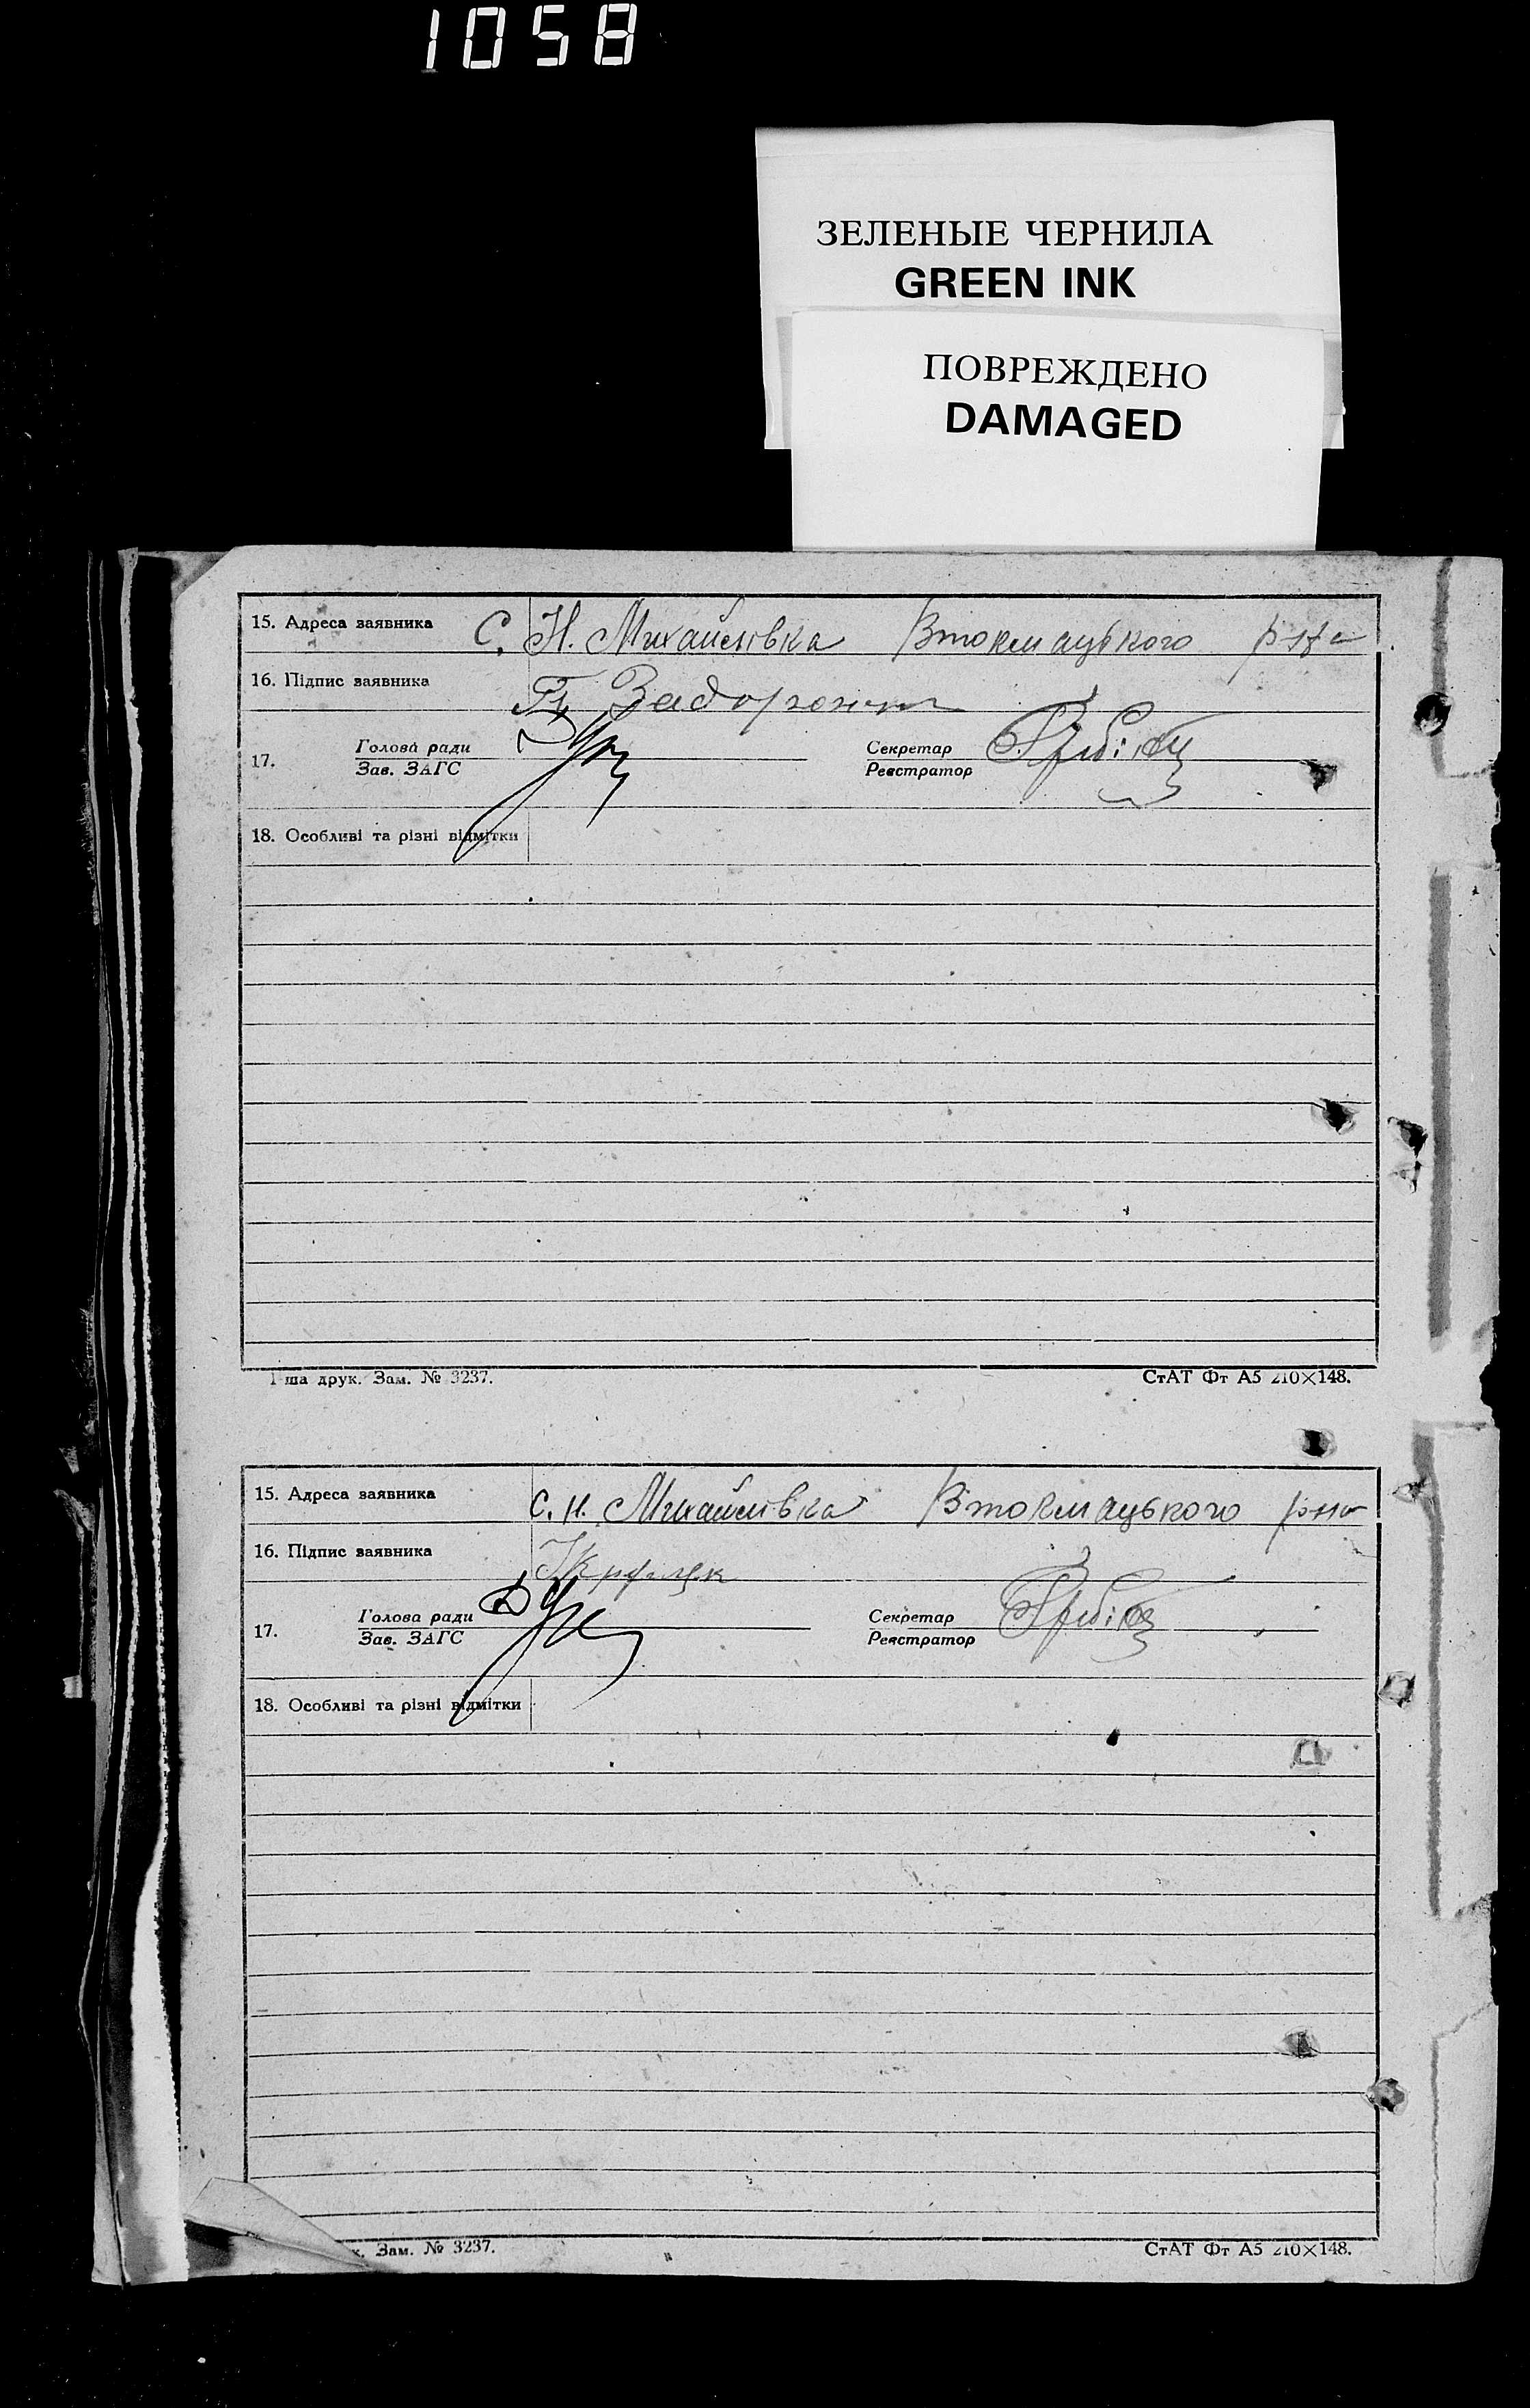 1058
ЗЕЛЕНЫЕ ЧЕРНИЛА
GREEN INK
ПОВРЕЖДЕНО
DAMAGED
15. Адреса заявника С. Н. Михайлівка Втокмацького р-на
16. Підпис заявника
17. Голова ради Секретар
Зав. ЗАГС Реєстратор
18. Особливі та різні відмітки
ша друк. Зам. № 3237. СтАТ Фт А5 210×148.
15. Адреса заявника с. Н. Михайлівка Втокмацького р-на
16. Підпис заявника
17. Голова ради Секретар
Зав. ЗАГС Реєстратор
18. Особливі та різні відмітки
к. Зам. № 3237. СтАТ Фт А5 210×148.